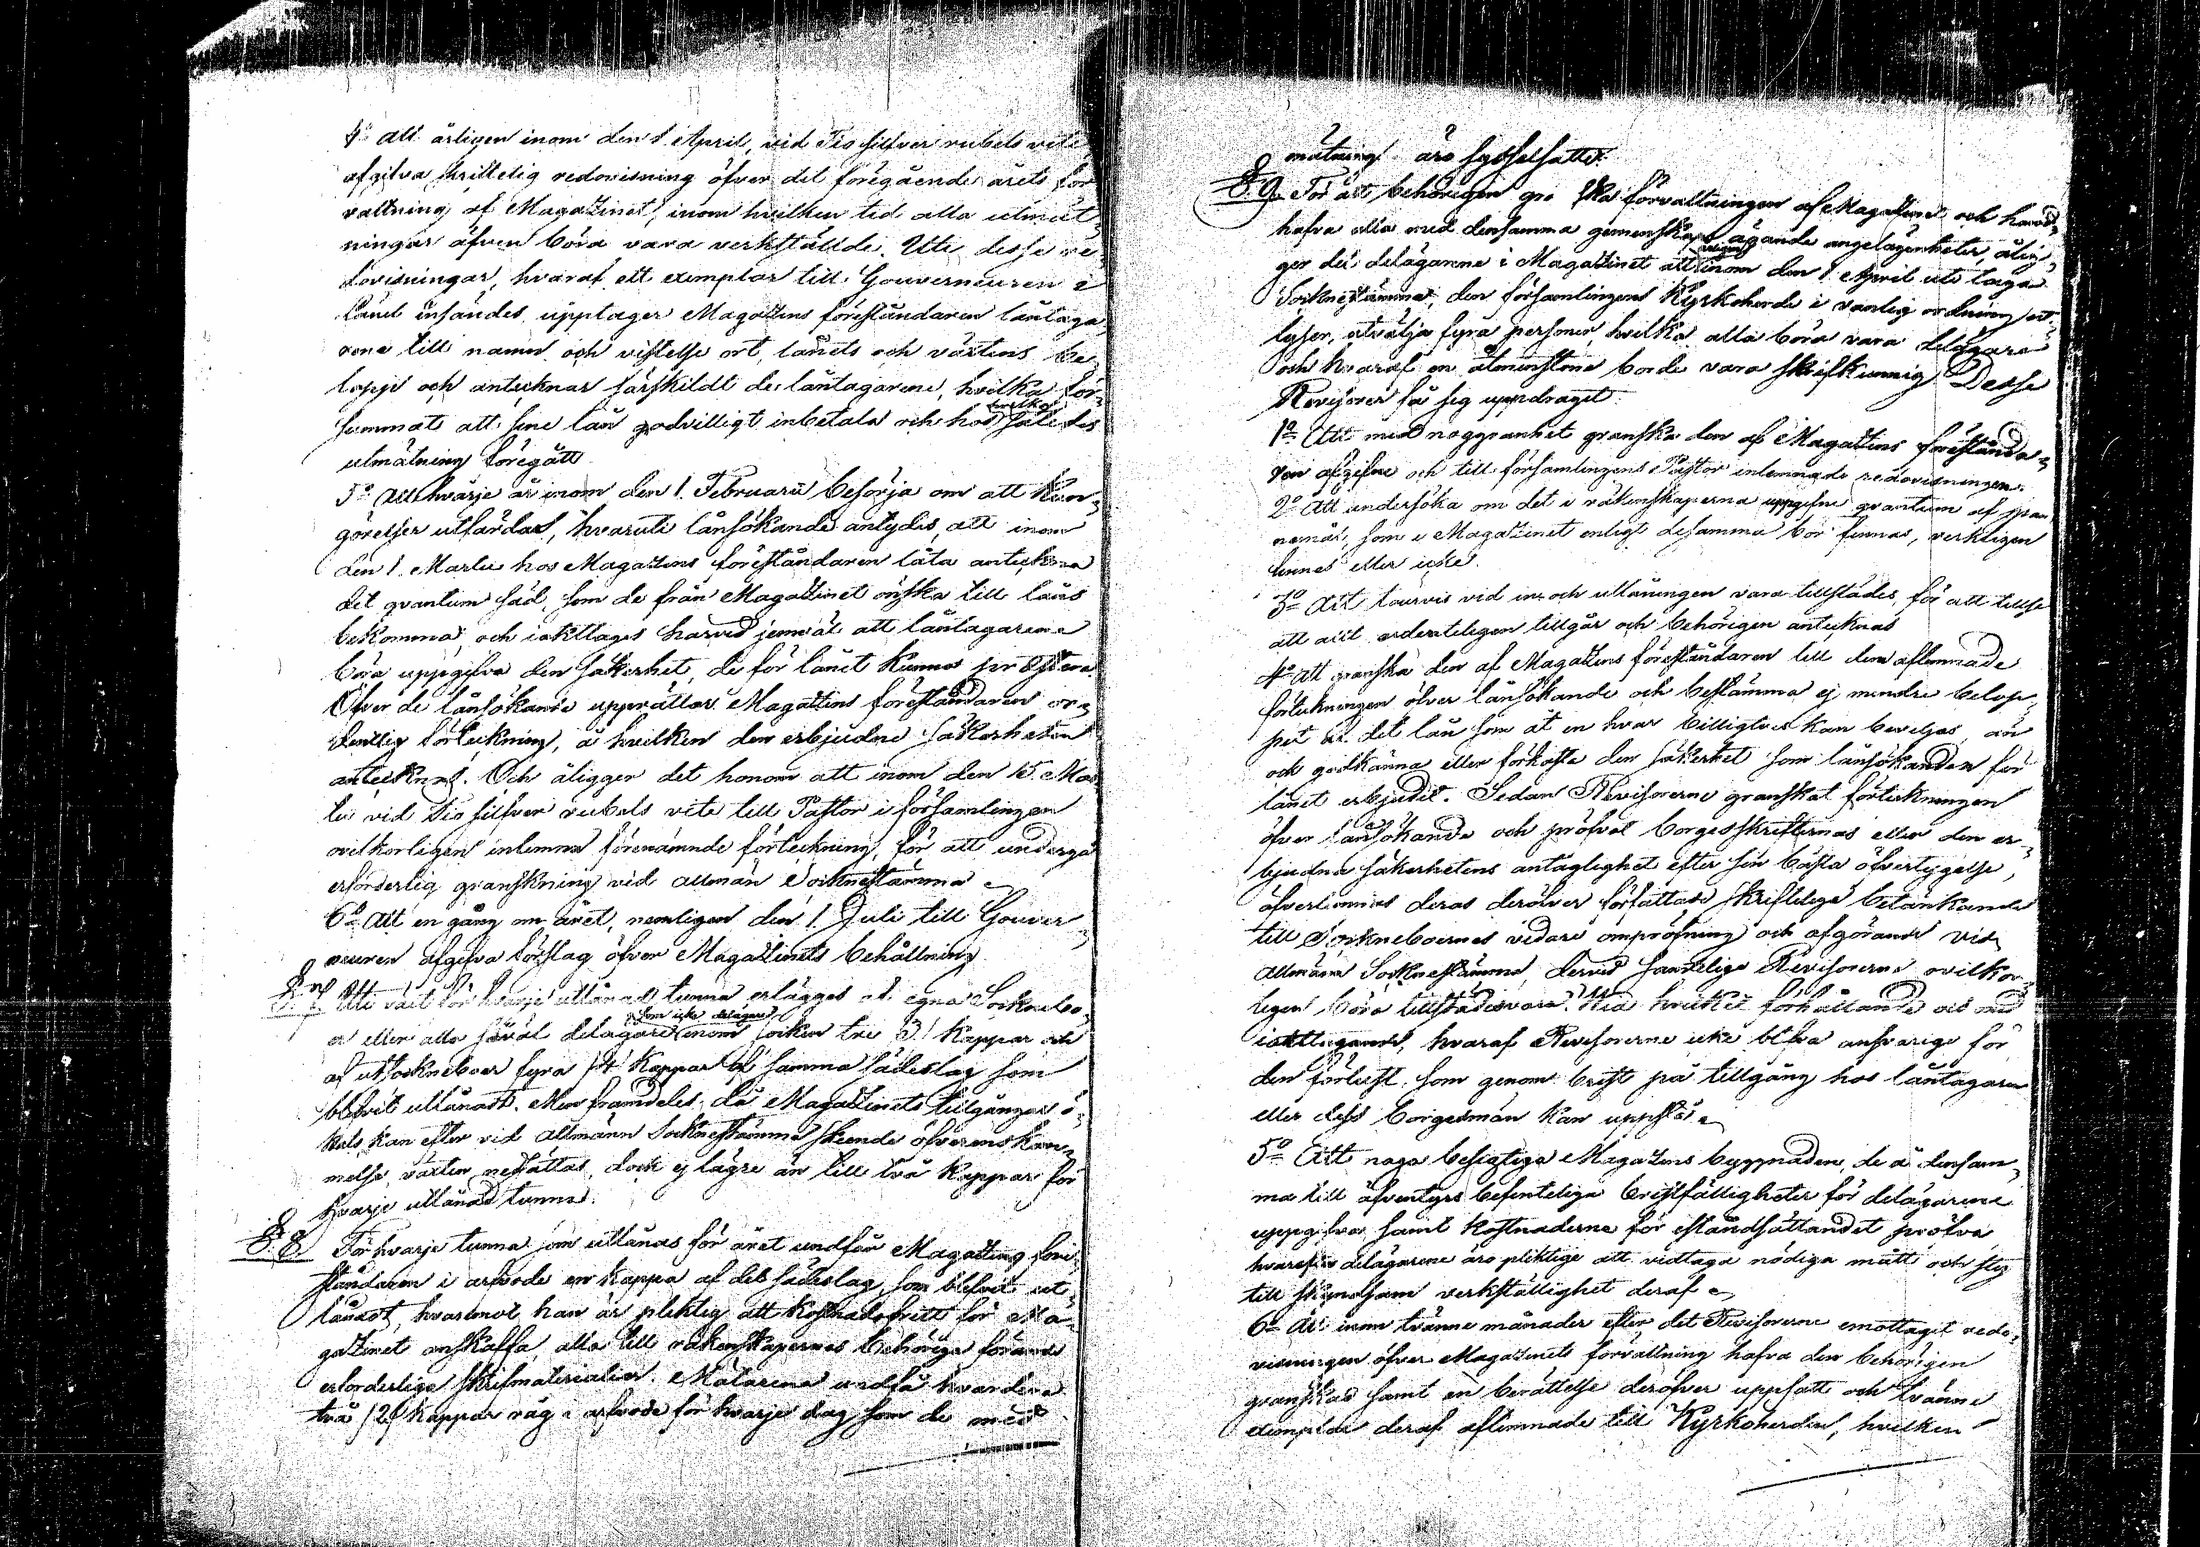 4o att årligen inom den 1 April, vid Tio silfver rubels vite
afgifva skriftelig redovisning öfver det föregående årets för
valtning af Magazinet, inom hvilken tid alla utmät
ningar äfven böra vara verkställde. Uti desse re-
dovisningar, hvaraf ett exemplar till Gouverneuren i
Länet insändes, upptager Magazins föreståndaren låntaga
rene till namn och vistelse ort, lånets och växtens be-
lopp och antecknar särskildt de låntagarene, hvilka för-
summat att sine lån godvilligt inbetala och hos hvilka således
utmätning föregått
5o Att hvarje år inom den 1. Februarii besörja om att kun-
görelser utfärdas, hvaruti lånsökande antydes, att inom
den 1. Martii hos Magazins föreståndaren låta anteckna
det qvantum säd, som de från Magazinet önska till låns
bekomma, och iakttages härvid jemväl att låntagarene
böra uppgifva den säkerhet, de för lånet kunna prestera.
Öfver de lånsökande upprättar Magazins föreståndaren or-
dentlig förteckning, å hvilken den erbjudne säkerheten
antecknas. Och åligger det honom att inom den 15. Mar
tii vid tio silfver rubels vite till Pastor i församlingen
ovilkorligen inlemna förenämnde förteckning, för att undergå
erforderlig granskning vid allmän Socknestämma
6o Att en gång om året, nemligen den 1 Juli till Gouver-
neuren afgifva förslag öfver Magazinets behållning.
§ 7. Uti växt för hvarje utlånad tunna erlägges af egna Socknebo-
er eller alla såväl delagare som icke delagare inom socken tre /3/ kappar och
af utsockneboer fyra /4/ kappar af samma sädeslag som
blifvit utlånadt. Men framdeles, då Magazinets tillgångar ö-
kats, kan efter vid allmänn Socknestämma skeende öfverenskom-
melse växten nedsättas, dock ej lägre än till två kappar för
hvarje utlånad tunna.
§ 8. För hvarje tunna som utlånas för året undfår Magazins före-
ståndaren i arfvode en kappa af det sädeslag, som blifvit ut-
lånadt, hvaremot han är pliktig att kostnadsfritt för Ma-
gazinet anskaffa, alla till räkenskapernes behöriga förande
erforderliga skrifmaterialier. Mätarena undfå hvardera
två /2/ kappar råg i arfvode för hvarje dag som de med
mätning äro sysselsatte.
§ 9. För att behörigen gra ska förvaltningen af Magazinet och hand-
hafva alla med densamma gemenskap ägande angelägenheter, ålig-
ger det delägarene i Magazinet att årligen inom den 1. April uti laga
Socknestämma, den församlingens Kyrkoherde i vanlig ordning ut-
lyser, utvälja fyra personer, hvilka alla böra vara delägare
och hvaraf en åtminstone borde vara skrifkunnig. Desse
Revisorer få sig uppdraget.
1o Att med noggranhet granska den af Magazins föreståndа-
ren afgifne och till församlingens Pastor inlemnade redovisningen.
2o Att undersöka om det i räkenskaperna uppgifne qvantum af span
nemål, som i Magazinet enligt desamma bör finnas, verkligen
finnes eller icke.
3o Att tourvis vid in och utlåningen vara tillstädes, för att tillse
att allt ordenteligen tillgår och behörigen antecknas
4o Att granska den af Magazins föreståndaren till dem aflemnade
förteckningen öfver lånsökande och bestämma ej mindre belop-
pet af det lån som åt en hvar billigtvis kan beviljas, än
ock godkänna eller förkasta den säkerhet som lånsökanden för
lånet erbjudit. Sedan Revisorerne granskat förteckningen
öfver lånsökande och pröfvat borgesskrifternas eller den er-
bjudna säkerhetens antaglighet efter sin bästa öfvertygelse,
öfverlemnas deras deröfver författade skriftelige betänkande
till Sockneboernes vidare ompröfning och afgörande vid
allmänn Socknestämma, dervid samtelige Revisorerne ovilkor-
ligen böra tillstädesvara. Vid hvilket förhållande och med
iakttagande, hvaraf Revisorerne icke blifva ansvarige för
den förlust, som genom brist på tillgång hos låntagaren
eller dess borgesmän kan uppstå.
5o Att noga besigtiga Magazins byggnaden, de å densam-
ma till äfventyrs befinteliga bristfälligheter för delägarene
uppgifva samt kostnaderne för iståndsättandet pröfva
hvarefter delägarene äro pliktige att vidtaga nödiga mått och steg
till skyndsam verkställighet deraf
6o Att inom tvänne månader efter det Revisorerne emottagit redo-
visningen öfver Magazinets förvaltning hafva den behörigen
granskad samt en berättelse deröfver uppsatt och tvänne
exemplar deraf aflemnade till Kyrkoherden, hvilken